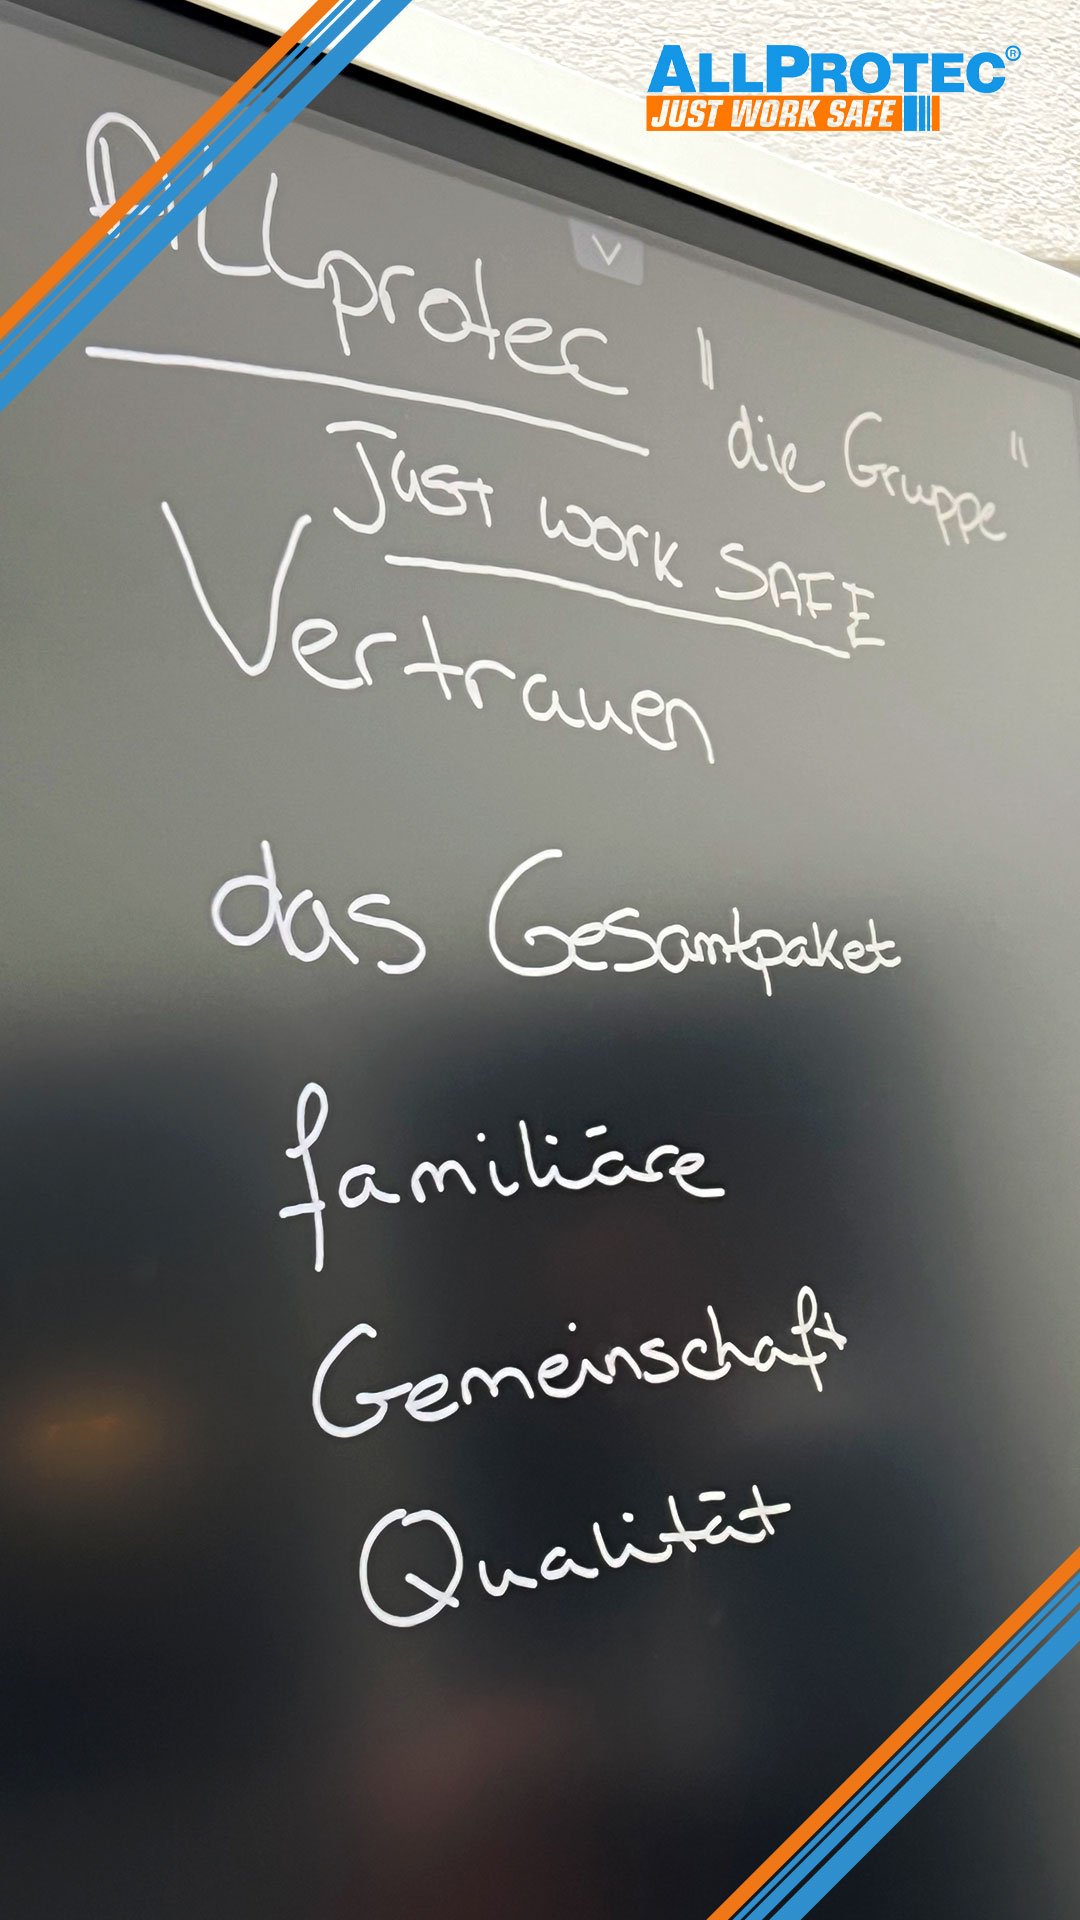 ALLPROTEC®
JUST WORK SAFE
Allprotec "die Gruppe"
Just work SAFE
Vertrauen
das Gesamtpaket
familiäre
Gemeinschaft
Qualität